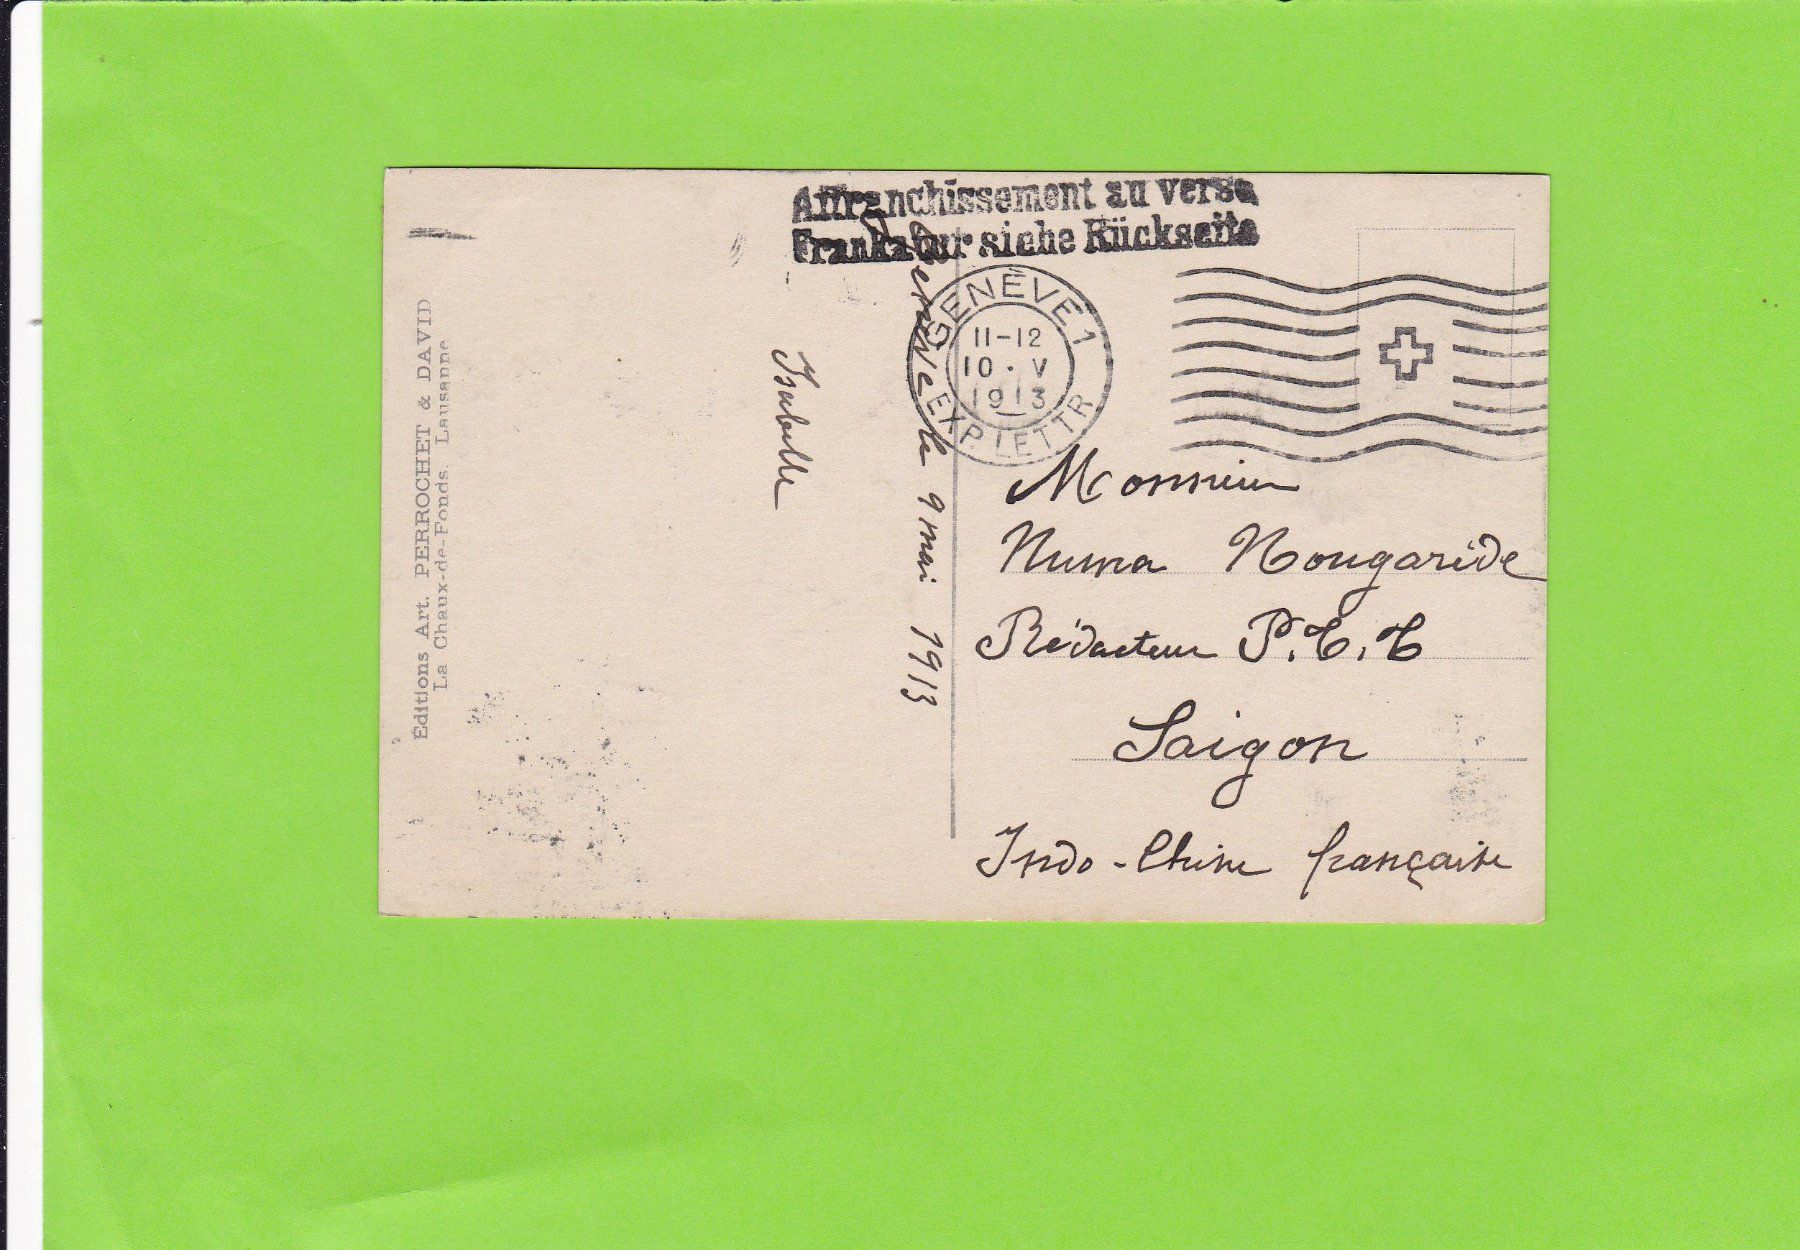 Affranchissement au verso
Frankatur siehe Rückseite
GENÈVE 1
11-12
10 · V
1913
EXP. LETTR.
Genève le 9 mai 1913
Isabelle
Monsieur
Numa Nougaride
Rédacteur P.T.T
Saigon
Indo-Chine française
Éditions Art. PERROCHET & DAVID
La Chaux-de-Fonds, Lausanne